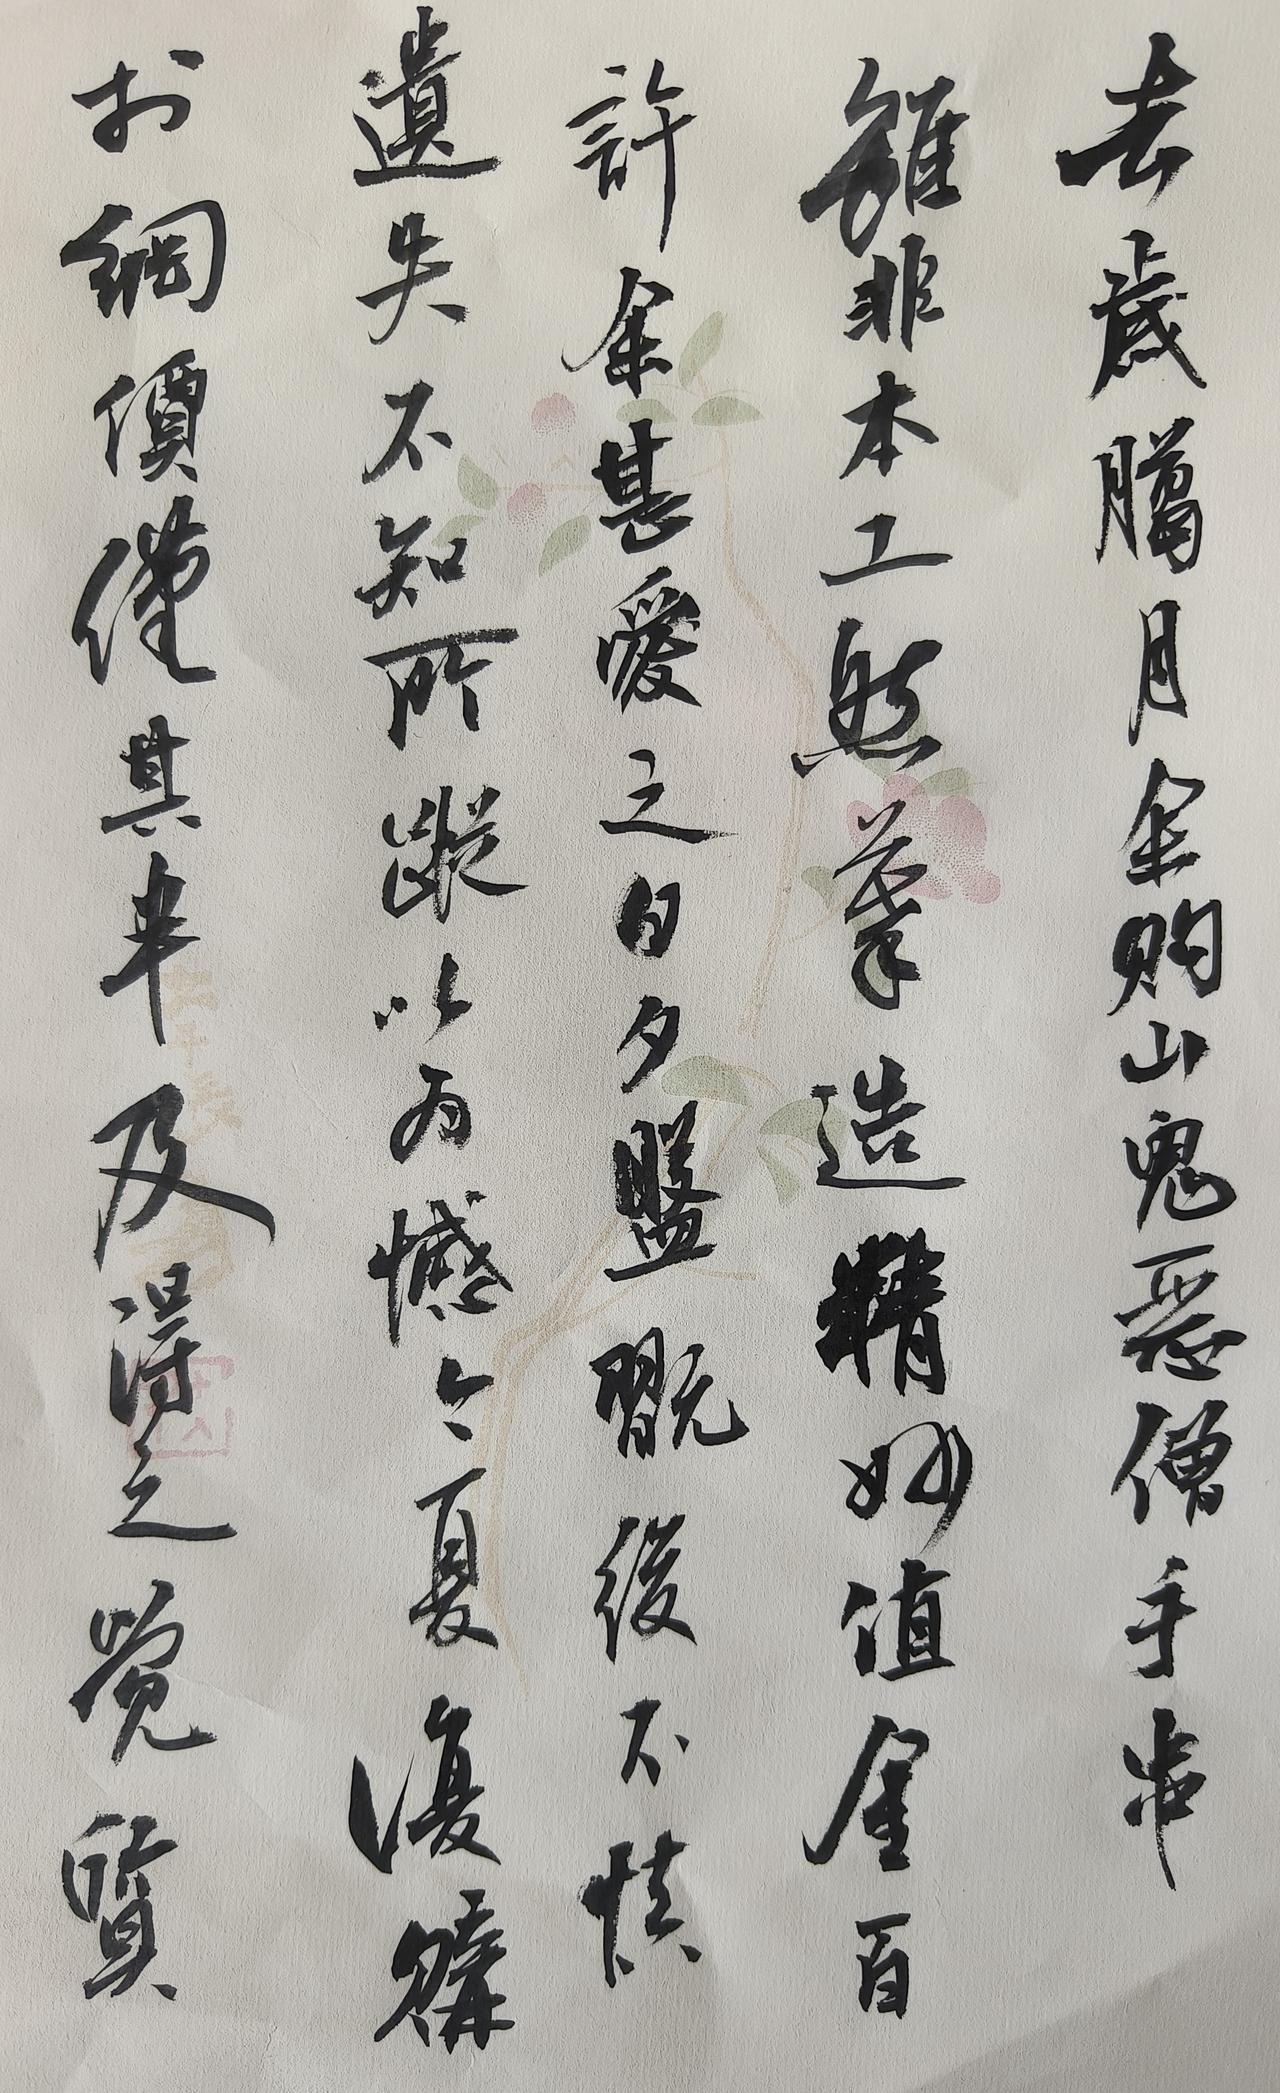 去歲臈月金购山鬼惡僧手串
雖非本工然摹造精妙值金百
許余甚愛之日夕盤翫後不慎
遺失不知所蹤以為憾今夏復購
於網價僅其半及得之覺質